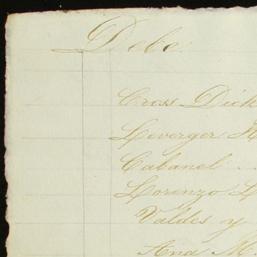 Debe
Cross Dick
Leverger H
Cabanel
Lorenzo L
Valdes y
Ana M.